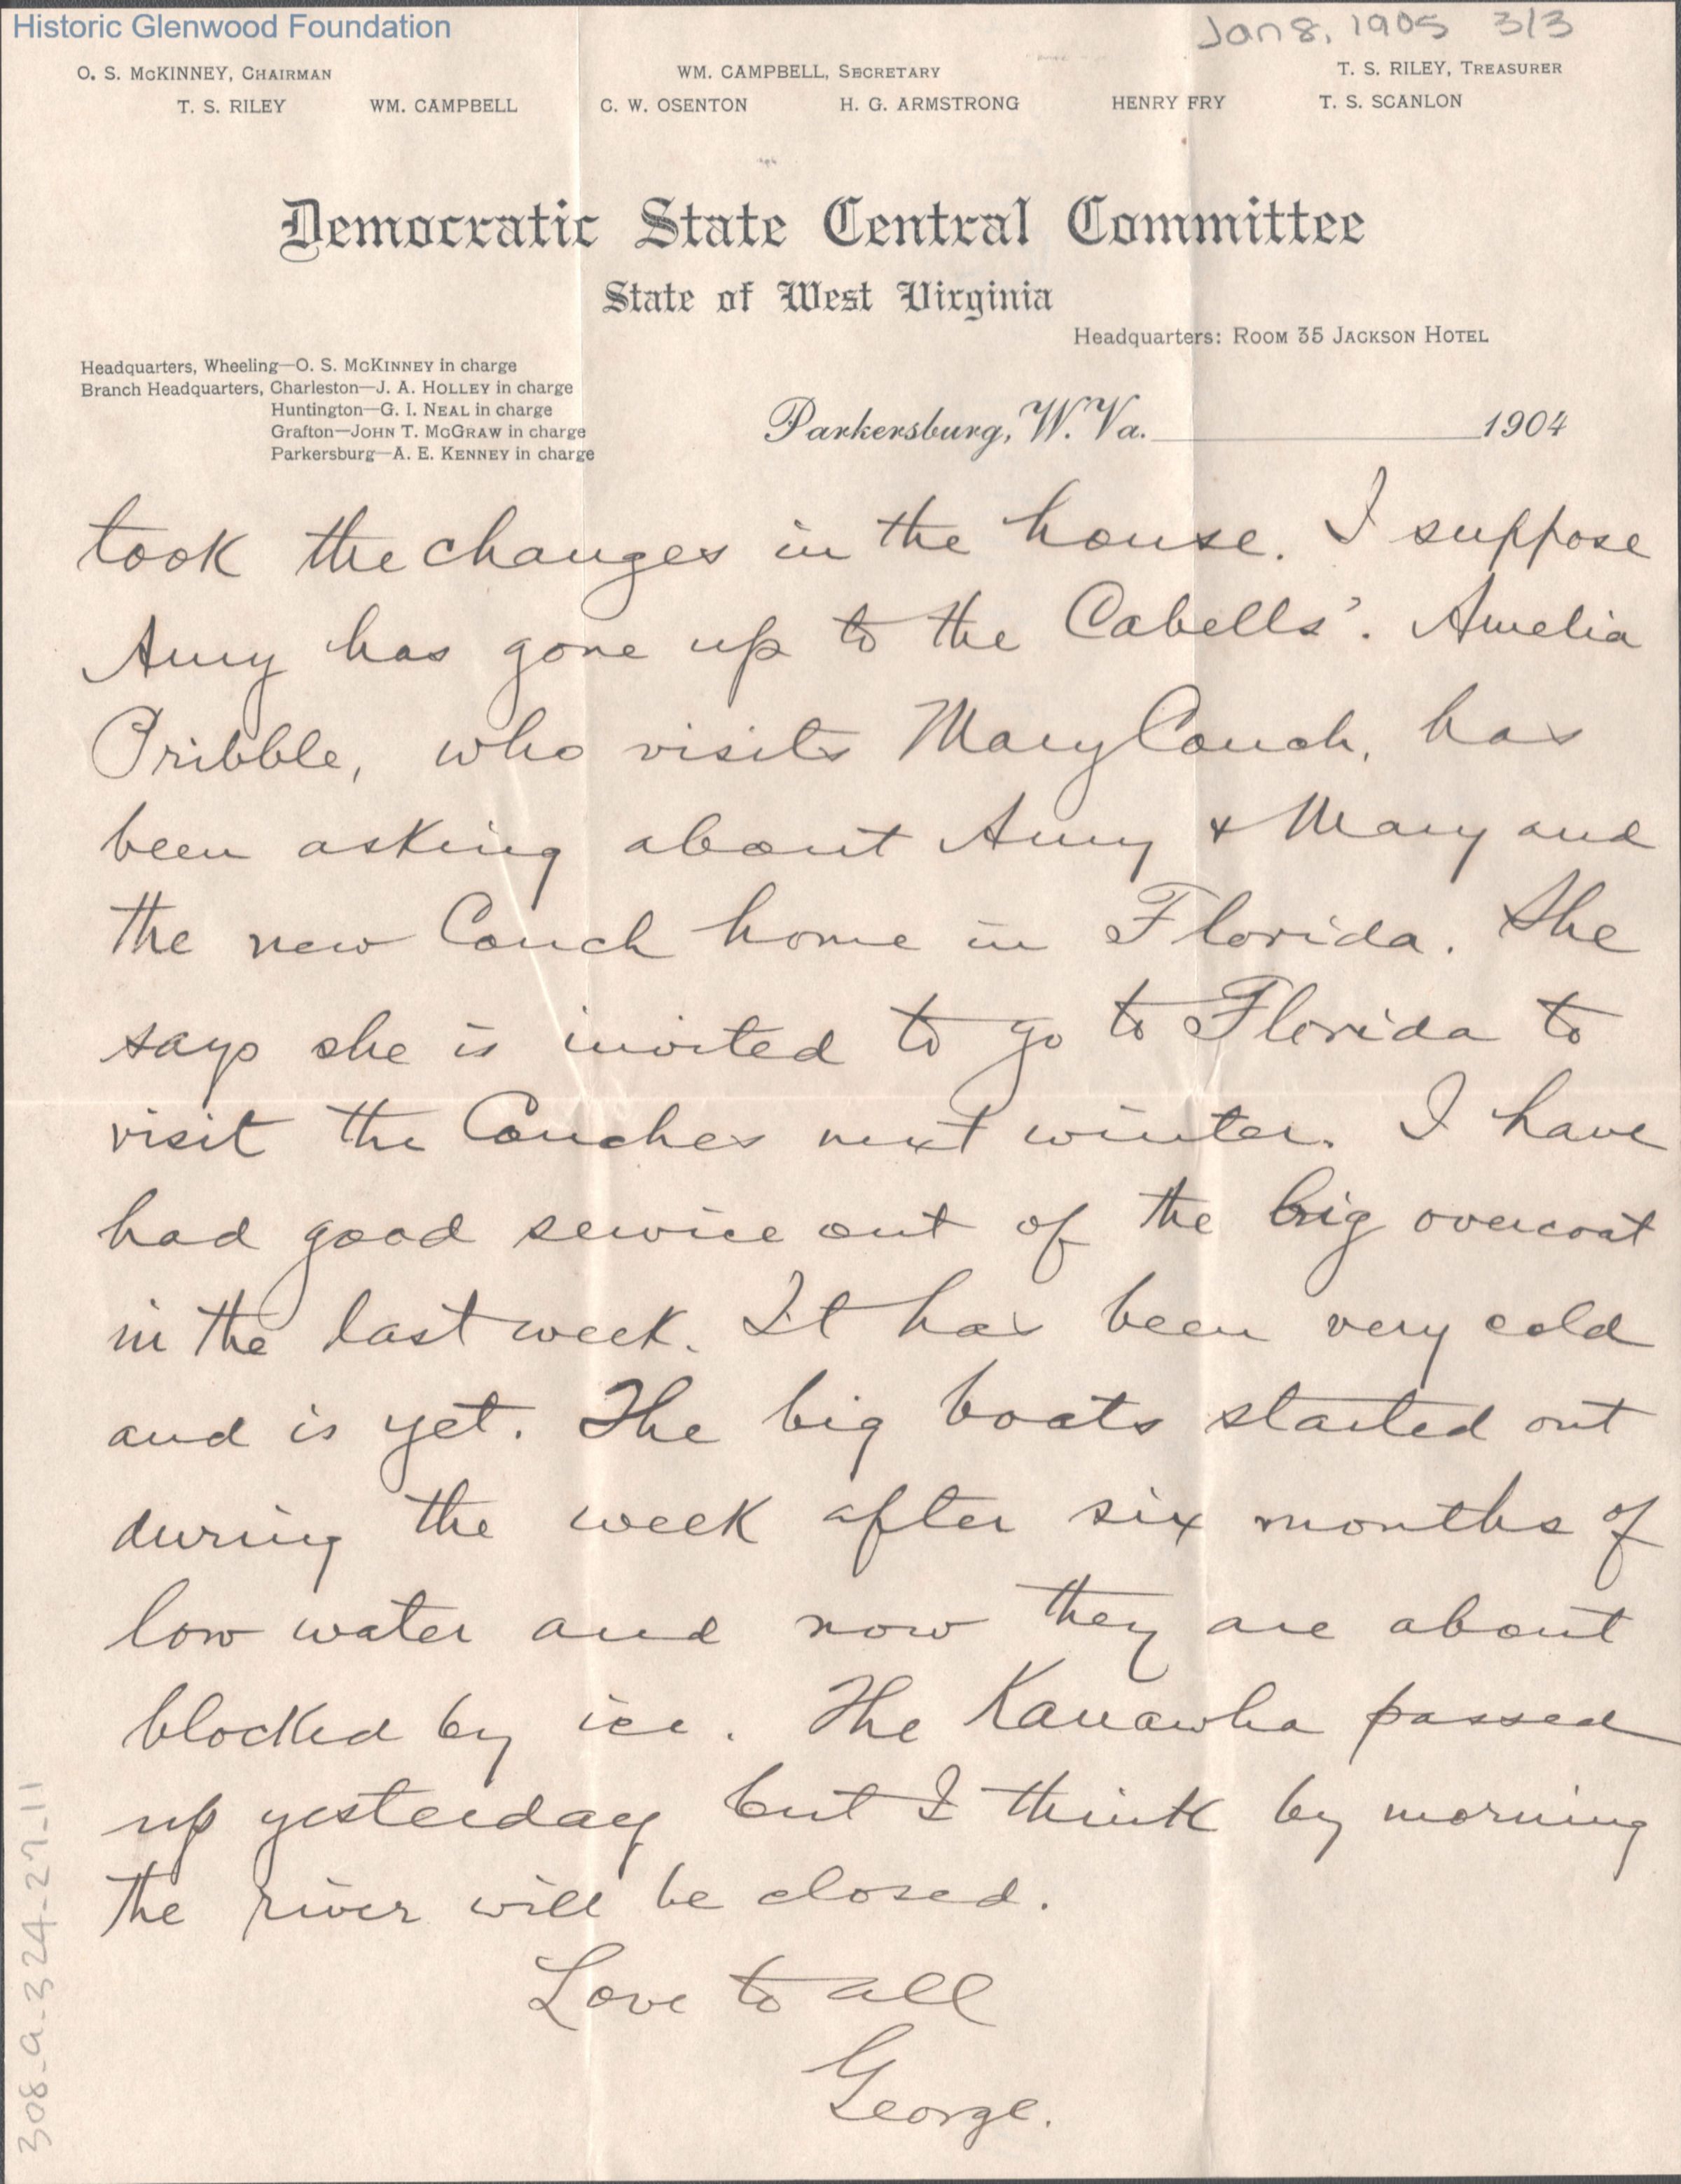 Historic Glenwood Foundation
Jan 8, 1905 3/3
O. S. McKINNEY, CHAIRMAN WM. CAMPBELL, SECRETARY T. S. RILEY, TREASURER
T. S. RILEY WM. CAMPBELL C. W. OSENTON H. G. ARMSTRONG HENRY FRY T. S. SCANLON
Democratic State Central Committee
State of West Virginia
Headquarters: ROOM 35 JACKSON HOTEL
Headquarters, Wheeling—O. S. McKINNEY in charge
Branch Headquarters, Charleston—J. A. HOLLEY in charge
Huntington—G. I. NEAL in charge
Grafton—JOHN T. McGRAW in charge
Parkersburg—A. E. KENNEY in charge
Parkersburg, W. Va. 1904
took the changes in the house. I suppose
Amy has gone up to the Cabells'. Amelia
Pribble, who visits Mary Couch, has
been asking about Amy & Mary and
the new Couch home in Florida. She
says she is invited to go to Florida to
visit the Couches next winter. I have
had good service out of the big overcoat
in the last week. It has been very cold
and is yet. The big boats started out
during the week after six months of
low water and now they are about
blocked by ice. The Kanawha passed
up yesterday but I think by morning
the river will be closed.
Love to all
George.
308-a-324-27-11